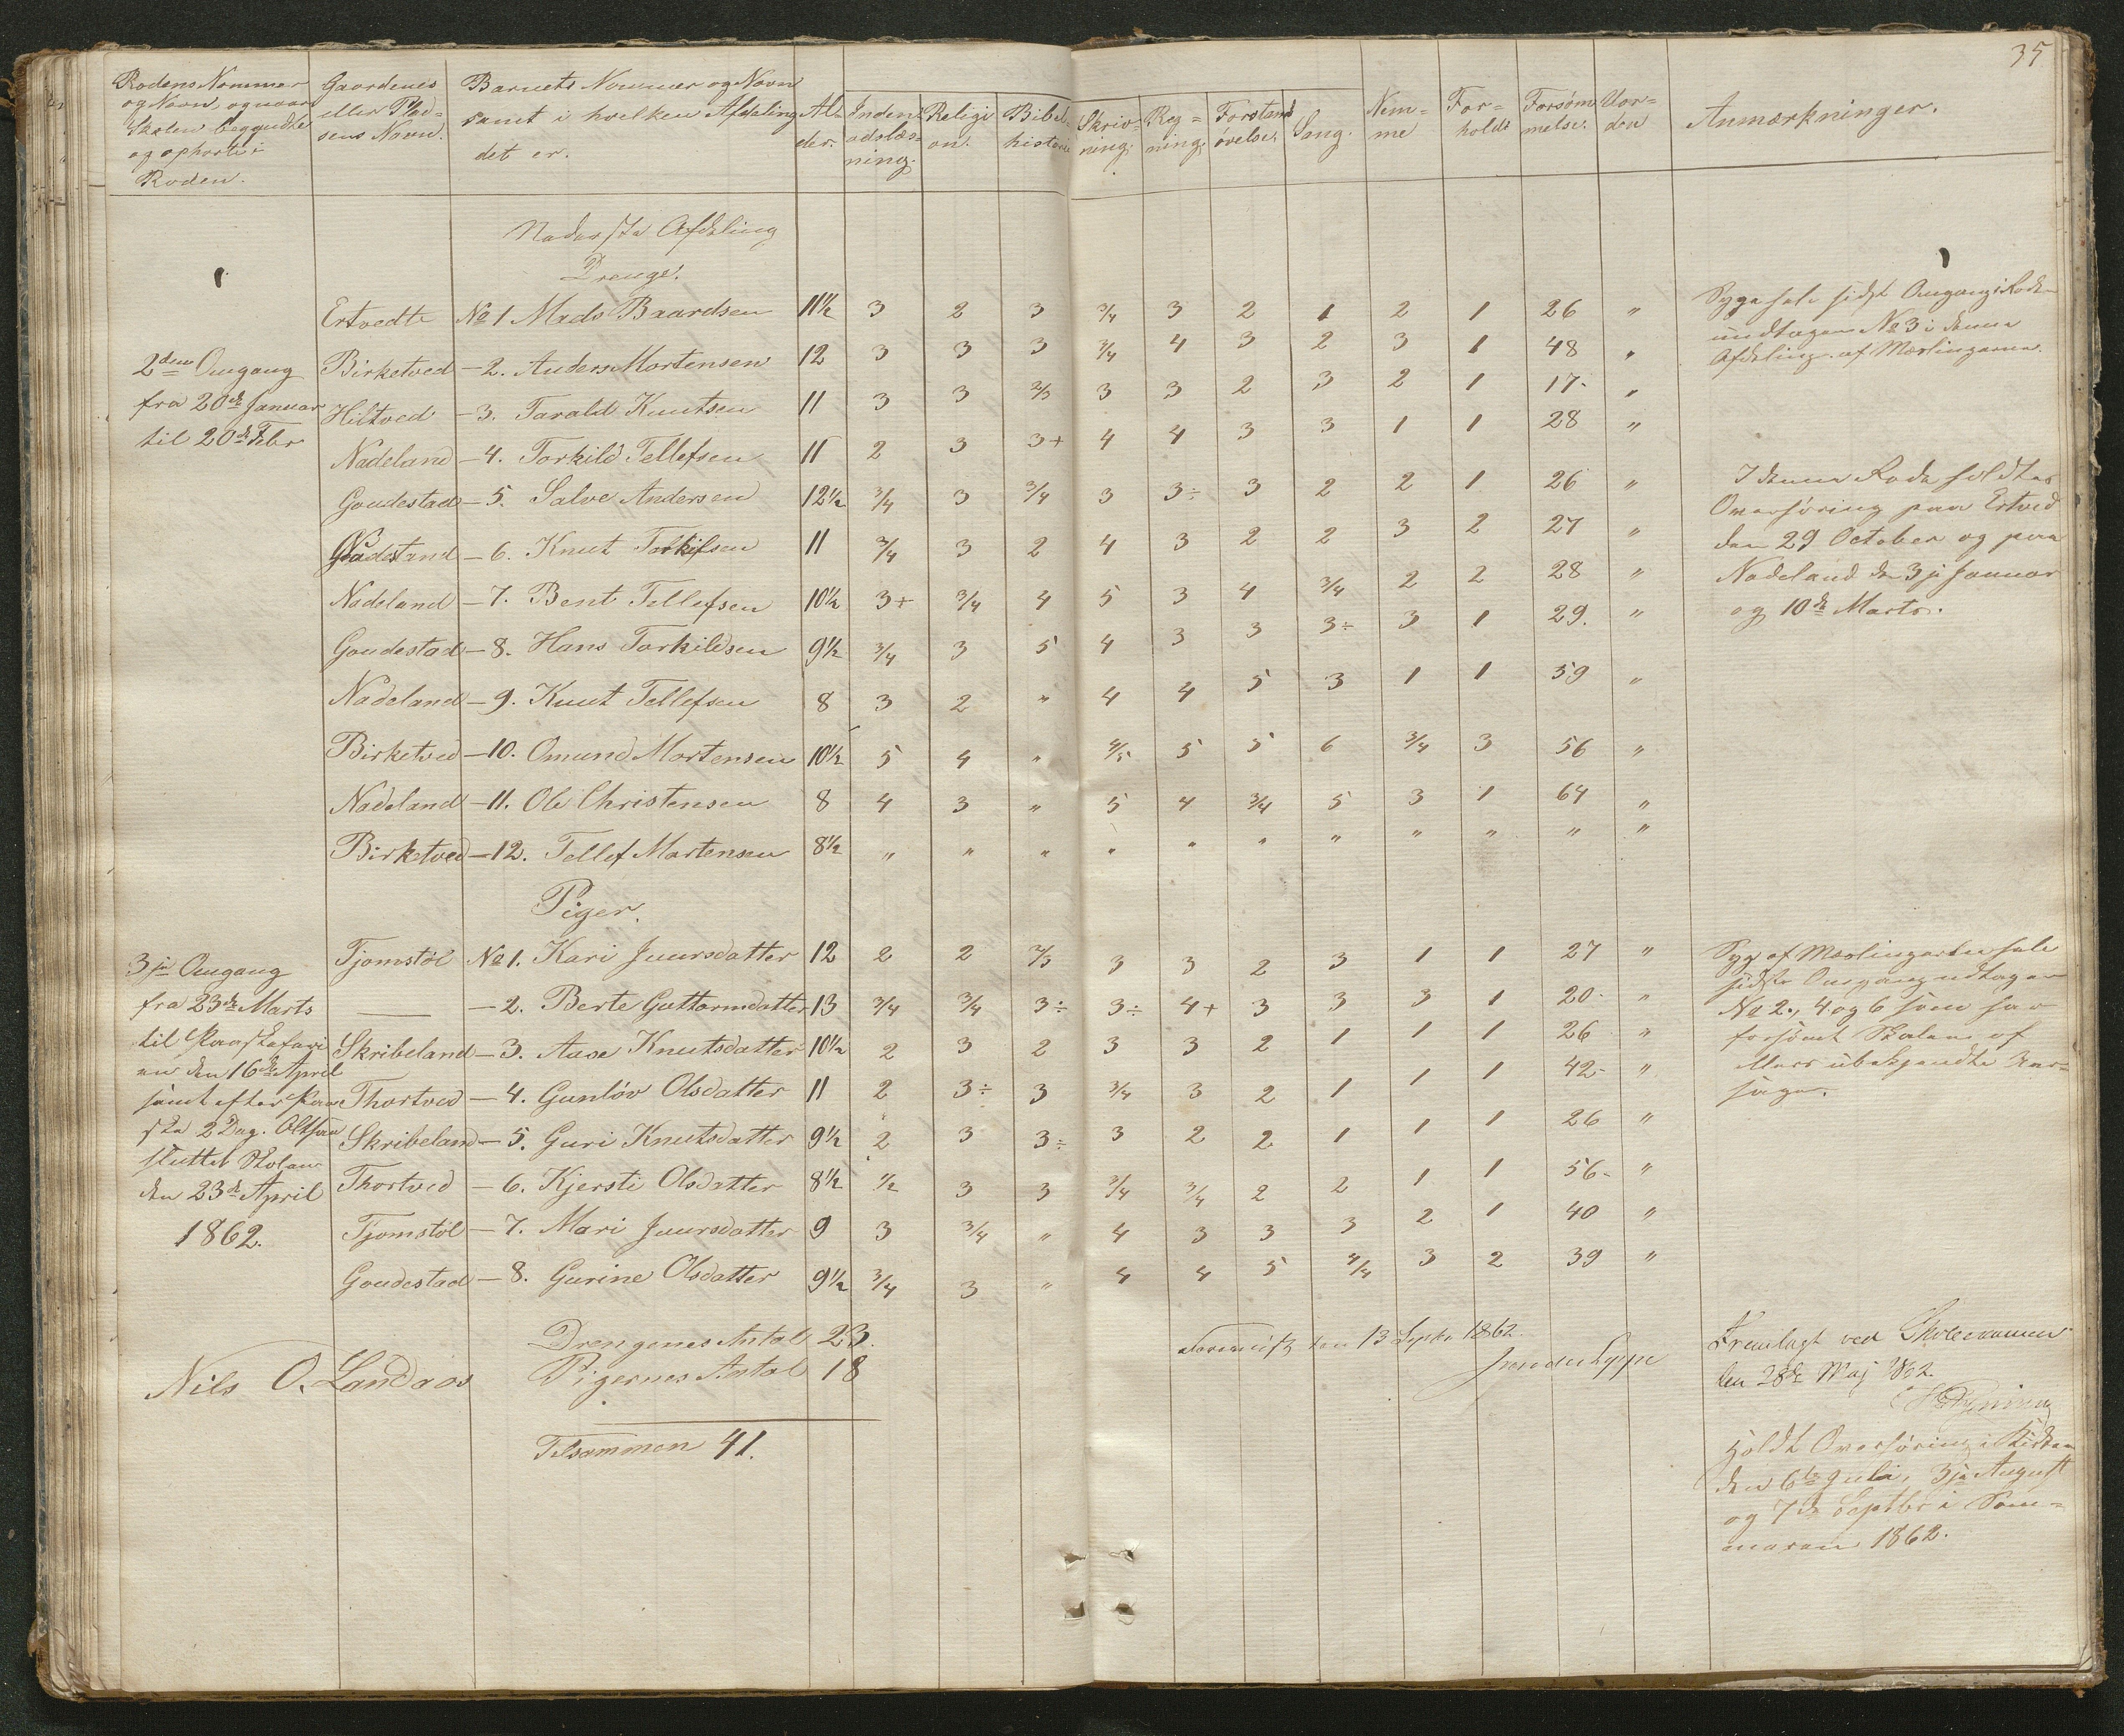 35
Rodens Nommer og Navn, og naar Skolen begyndte og ophørte i Roden.
Gaardenes eller Pladsens Navn.
Barnets Nommer og Navn samt i hvilken Afdeling det er.
Alder.
Indenadslæsning.
Religion.
Bibelhistorie
Skrivning.
Regning.
Forstandsøvelse.
Sang.
Nemme
Forhold
Forsømmelse.
Vorden
Anmærkninger.
Nederste Afdeling
Drenge.
Ertvedte No 1 Mads Baardsen 11½ 3 2 3 3/4 3 2 1 2 1 26 "
Birketved – 2. Anders Mortensen 12 3 3 3 3/4 4 3 2 3 1 48 "
Hiltved – 3. Tarald Knutsen 11 3 3 2/3 3 3 2 3 2 1 17. "
Nadeland – 4. Torkild Tellefsen 11 2 3 3+ 4 4 3 3 1 1 28 "
Goudestad – 5. Salve Andersen 12½ 3/4 3 3/4 3 3÷ 3 2 2 1 26 "
– 6. Knut 11 3/4 3 2 4 3 2 2 3 2 27 "
Nadeland – 7. Bent Tellefsen 10½ 3+ 3/4 4 5 3 4 3/4 2 2 28 "
Goudestad – 8. Hans Torkildsen 9½ 3/4 3 5 4 3 3 3÷ 3 1 29. "
Nadeland – 9. Knut Tellefsen 8 3 2 " 4 4 5 3 1 1 59 "
Birketved – 10. Omund Mortensen 10½ 5 4 " 4/5 5 5 6 3/4 3 56 "
Nadeland – 11. Ole Christensen 8 4 3 " 5 4 3/4 5 3 1 64 "
Birketved – 12. Tellef Mortensen 8½ " " " " " " " " " " "
2den Omgang
fra 20de Januar
til 20de Febr
Syge hele sidst Omgang i Roden
undtagen No 3 i denne
Afdeling. af Mæslingerne.
I denne Rode holdtes
Overhøring paa Ertved
den 29 October og paa
Nadeland den 3je Januar
og 10de Marts.
Piger.
Tjomstøl No 1. Kari Juursdatter 12 2 2 2/3 3 3 2 3 1 1 27 "
— – 2. Berte Guttormdatter 13 3/4 3/4 3÷ 3÷ 4+ 3 3 3 1 20. "
Skribeland – 3. Aase Knutsdatter 10½ 2 3 2 3 3 2 1 1 1 26 "
Thortved – 4. Gunløv Olsdatter 11 2 3÷ 3 3/4 3 2 1 1 1 42. "
Skribeland – 5. Guri Knutsdatter 9½ 2 3 3÷ 3 2 2 1 1 1 26 "
Thortved – 6. Kjersti Olsdatter 8½ ½ 3 3 3/4 3/4 2 2 1 1 56. "
Tjomstøl – 7. Mari Juursdatter 9 3 3/4 " 4 3 3 3 2 1 40 "
Goudestad – 8. Gurine Olsdatter 9½ 3/4 3 " 4 4 5 4/4 3 2 39 "
3je Omgang
fra 23de Marts
til Paaskeferi
en den 16de April
samt efter Paa
ske 2 Dag. Altsaa
sluttet Skolen
den 23de April
1862.
Syg af Mæslingerne hele
sidste Omgang undtagen
No 2., 4. og 6 som har
forsømt Skolen af
ubekjendte Aar-
sager.
Drengenes Antal 23.
Pigernes Antal 18
Tilsammen 41.
Nils O. Landaas
den 13 Septbr 1862.
Fremlagt ved Skoleexamen
den 28de Maj 1862.
Holdt Overhøring i Kirken
den 6te Juli, 3je August
og 7de Septbr i Som-
meren 1862.